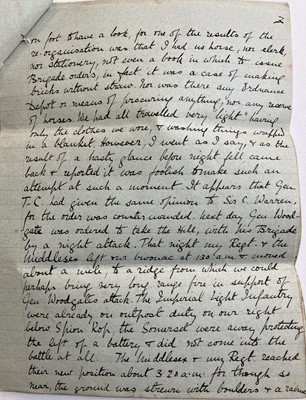 2
on foot to have a look, for one of the results of the
re-organisation was that I had no horse, nor clerk,
nor stationery, not even a book in which to issue
Brigade orders, in fact it was a case of making
bricks without straw. nor was there any Ordnance
Depot or means of procuring anything, nor any reserve
of horses. We had all travelled very "light" having
only the clothes we wore, & washing things wrapped
in a blanket. However, I went as I say, & as the
result of a hasty glance before night fell came
back & reported it was foolish to make such an
attempt at such a moment. It appears that Gen
T.C. had given the same opinion to Sir C. Warren,
for the order was countermanded. next day Gen Wood-
gate was ordered to take the Hill, with his Brigade
by a night attack. That night my Regt. & the
Middlesex left our bivouac at 1.30 a.m. & moved
about a mile to a ridge from which we could
perhaps bring very long range fire in support of
Gen Woodgates attack. The Imperial Light Infantry
were already on outpost duty on our right
below Spion Kop, the Somersets were away protecting
the left of a battery & did not come into the
battle at all. The Middlesex & my Regt. reached
their new position about 3.20 a.m. for though so
near, the ground was strewn with boulders & a